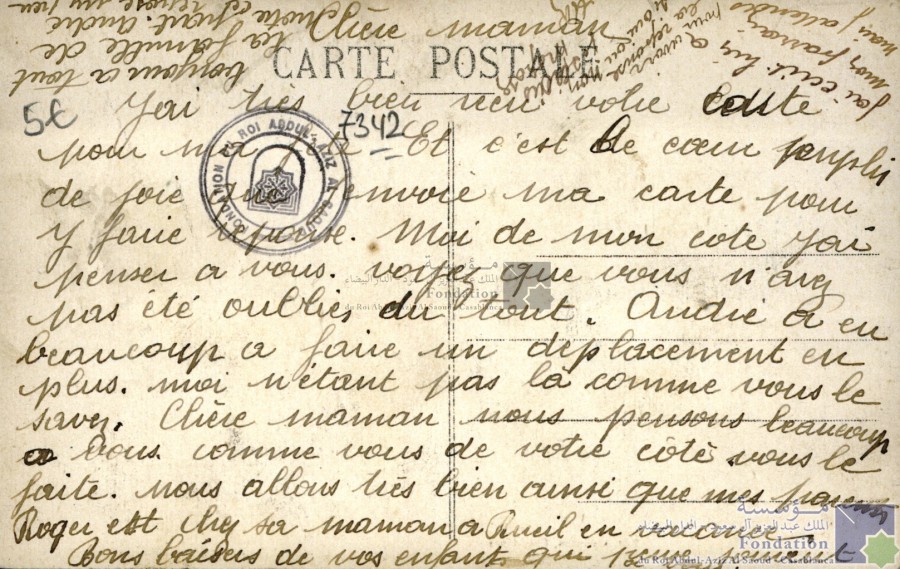 Chère maman
CARTE POSTALE
J'ai très bien reçu votre carte
5€
7342
pour ma Et c'est de cœur remplis
de joie envoie ma carte pour
y faire réponse. Moi de mon cote j'ai
penser a vous. voyez que vous n'avez
pas été oublies du tout. André a eu
beaucoup a faire un déplacement en
plus. moi n'étant pas là comme vous le
savez. Chère maman nous pensons beaucoup
a vous comme vous de votre côté vous le
faite. nous allons très bien ainsi que mes parents
Roger est chez sa maman a Rueil en vacance
Bons baisers de vos enfants qui
bonjour a tout
la famille de
FONDATION DU ROI ABDUL-AZIZ AL SAOUD
مؤسسة
الملك عبد العزيز آل سعود - الدار البيضاء
Fondation
du Roi Abdul-Aziz Al Saoud - Casablanca
مؤسسة
الملك عبد العزيز آل سعود - الدار البيضاء
Fondation
du Roi Abdul-Aziz Al Saoud - Casablanca